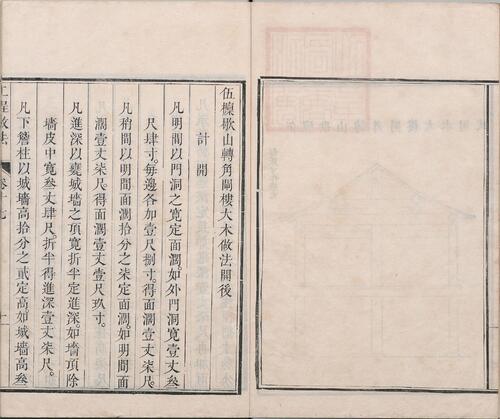 伍檁歇山轉角閘樓大木做法開後
計開
凡明間以門洞之寬定面濶如外門洞寬壹丈叁
尺肆寸每邊各加壹尺捌寸得面濶壹丈柒尺
凡稍間以明間面濶拾分之柒定面濶如明間面
濶壹丈柒尺得面濶壹丈壹尺玖寸
凡進深以甕城墻之頂寬折半定進深如墻頂除
墻皮中寬叁丈肆尺折半得進深壹丈柒尺
凡下簷柱以城墻高拾分之貳定高如城墻高叁
工程做法 卷十七